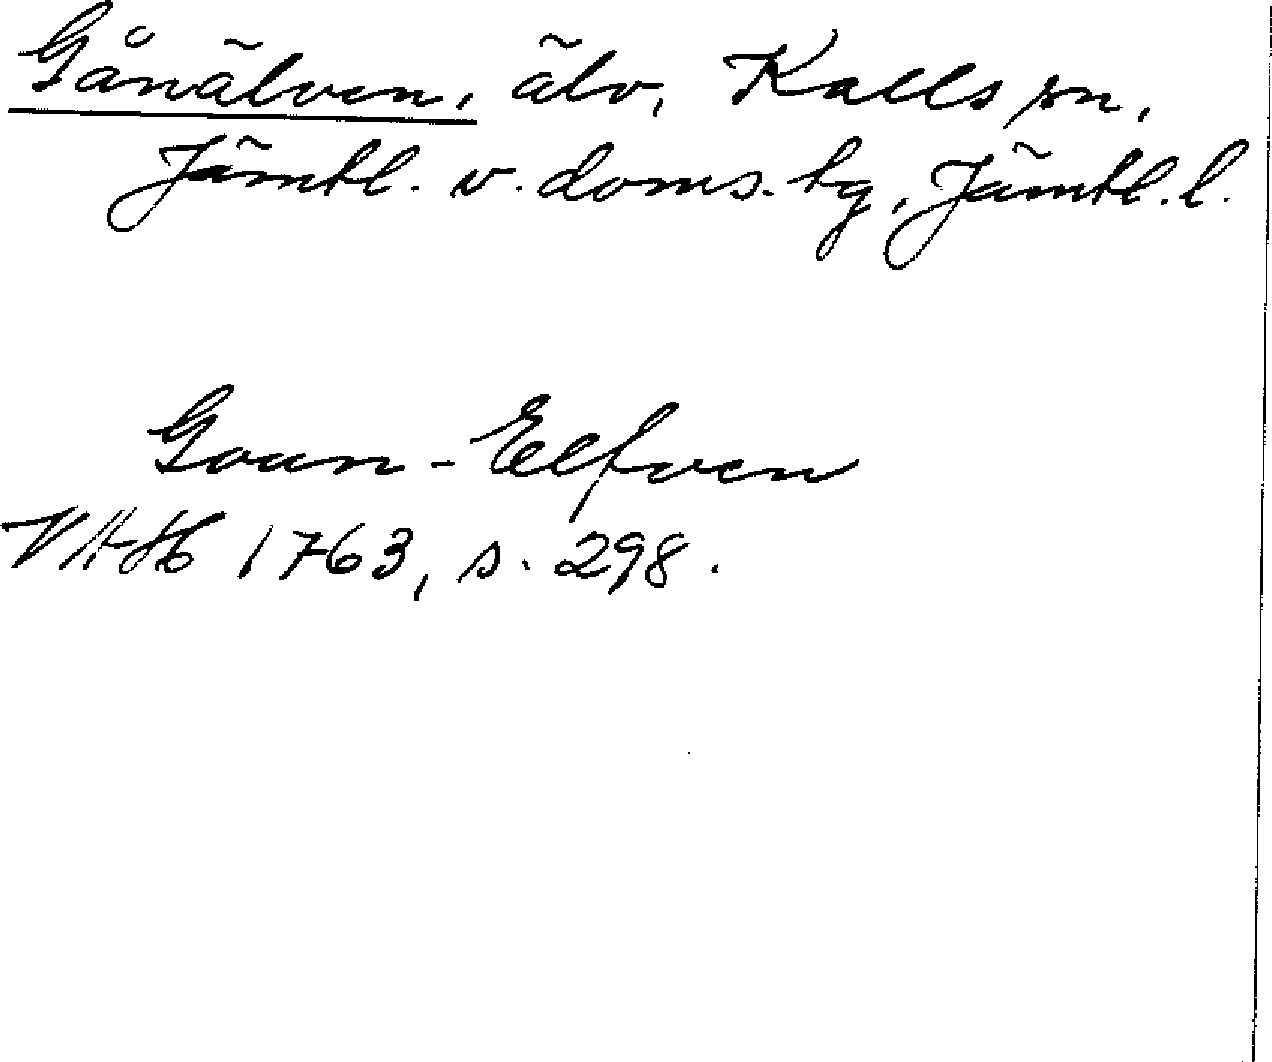 Gånälven, älv, Kalls sn,
Jämtl. v. doms. tg, Jämtl. l.
Goun-Elfven
VAH 1763, s. 298.